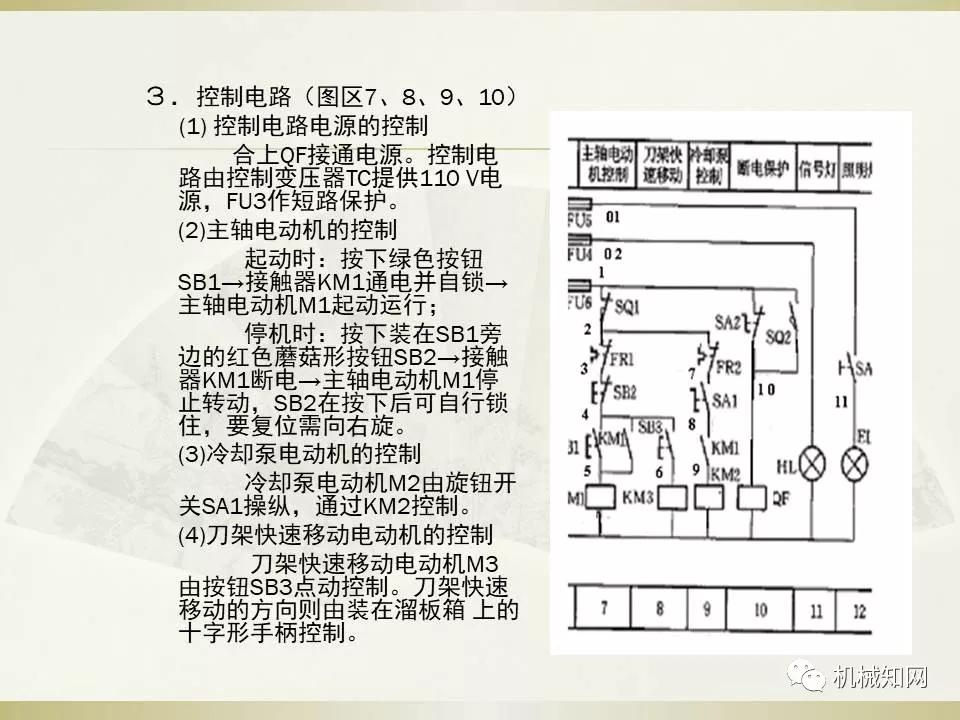 ３．控制电路（图区7、8、9、10）
(1) 控制电路电源的控制
合上QF接通电源。控制电
路由控制变压器TC提供110 V电
源，FU3作短路保护。
(2)主轴电动机的控制
起动时：按下绿色按钮
SB1→接触器KM1通电并自锁→
主轴电动机M1起动运行；
停机时：按下装在SB1旁
边的红色蘑菇形按钮SB2→接触
器KM1断电→主轴电动机M1停
止转动，SB2在按下后可自行锁
住，要复位需向右旋。
(3)冷却泵电动机的控制
冷却泵电动机M2由旋钮开
关SA1操纵，通过KM2控制。
(4)刀架快速移动电动机的控制
刀架快速移动电动机M3
由按钮SB3点动控制。刀架快速
移动的方向则由装在溜板箱 上的
十字形手柄控制。
主轴电动 刀架快 冷却泵 断电保护 信号灯 照明灯
机控制 速移动 控制
FU5 01
FU4 02
1
FU6
SQ1 SA2 SQ2
2
3 FR1 7 FR2 SA
SB2 SA1 10 11
4 8
SB3 EL
B1 KM1 KM1 HL
5 6 9 KM2
M1 KM3 QF
7 8 9 10 11 12
机械知网